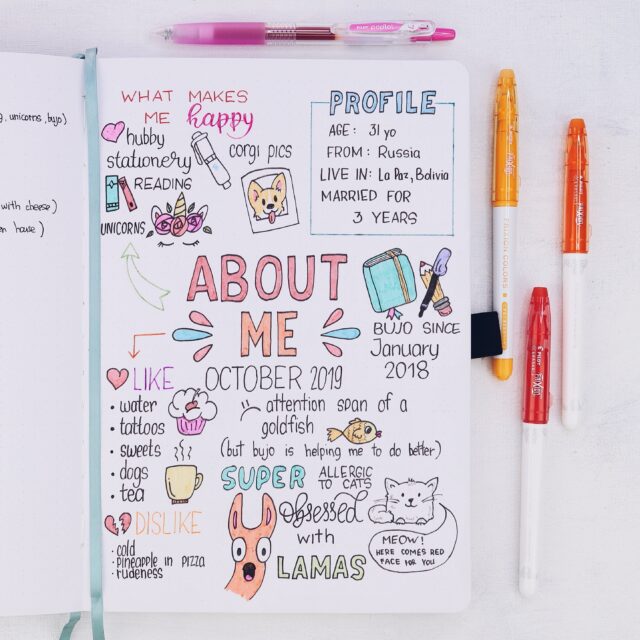 , unicorns, bujo)
with cheese)
house)
WHAT MAKES
ME happy
hubby
stationery
corgi pics
READING
UNICORNS
PROFILE
AGE: 31 yo
FROM: Russia
LIVE IN: La Paz, Bolivia
MARRIED FOR
3 YEARS
ABOUT
ME
BUJO SINCE
January
2018
LIKE
• water
• tattoos
• sweets
• dogs
• tea
DISLIKE
• cold
• pineapple in pizza
• rudeness
OCTOBER 2019
attention span of a
goldfish
(but bujo is helping me to do better)
SUPER ALLERGIC
TO CATS
obsessed
with
LAMAS
MEOW!
HERE COMES RED
FACE FOR YOU
PILOT
FRIXION COLORS
PILOT FRIXION
PILOT FRIXION